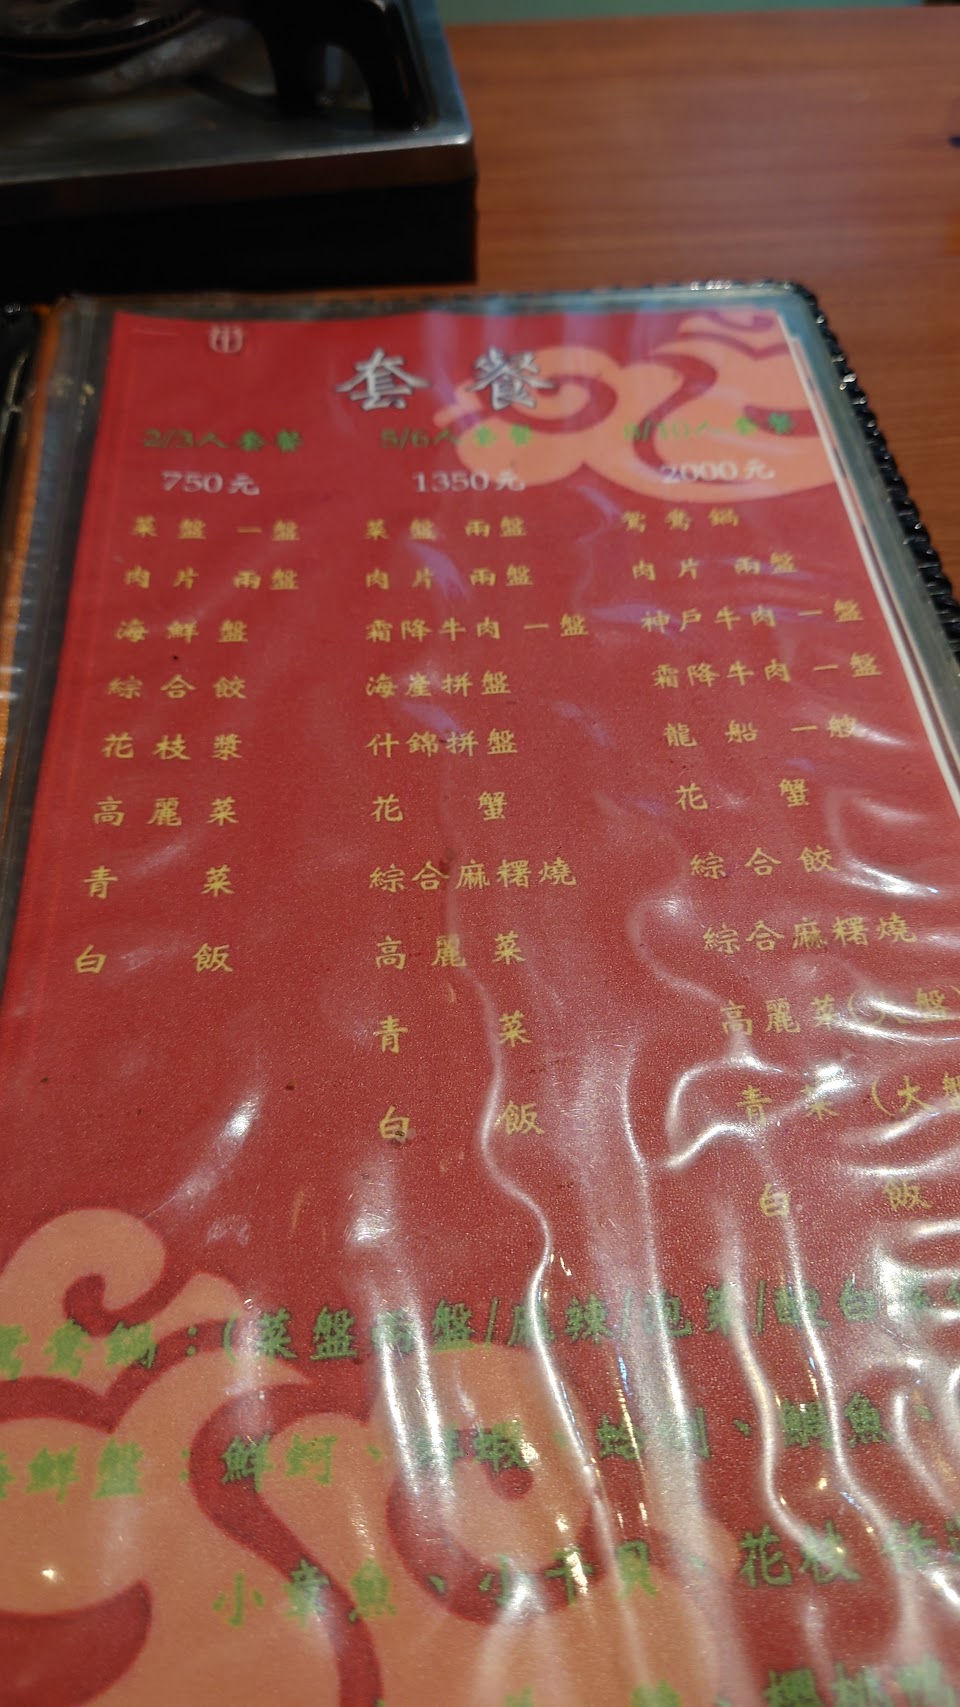 套餐
2/3人套餐 5/6人套餐 8/10人套餐
750元 1350元 2000元
菜盤 一盤 菜盤 兩盤 鴛鴦鍋
肉片 兩盤 肉片 兩盤 肉片 兩盤
海鮮盤 霜降牛肉 一盤 神戶牛肉 一盤
綜合餃 海崖拼盤 霜降牛肉 一盤
花枝漿 什錦拼盤 龍船 一艘
高麗菜 花蟹 花蟹
青菜 綜合麻糬燒 綜合餃
白飯 高麗菜 綜合麻糬燒
青菜 高麗菜(大盤)
白飯 青菜(大盤
白飯
鴛鴦鍋:(菜盤兩盤/麻辣/泡菜/酸白菜
海鮮盤:鮮蚵、鮮蝦、鯛魚、
小章魚、小干貝、花枝